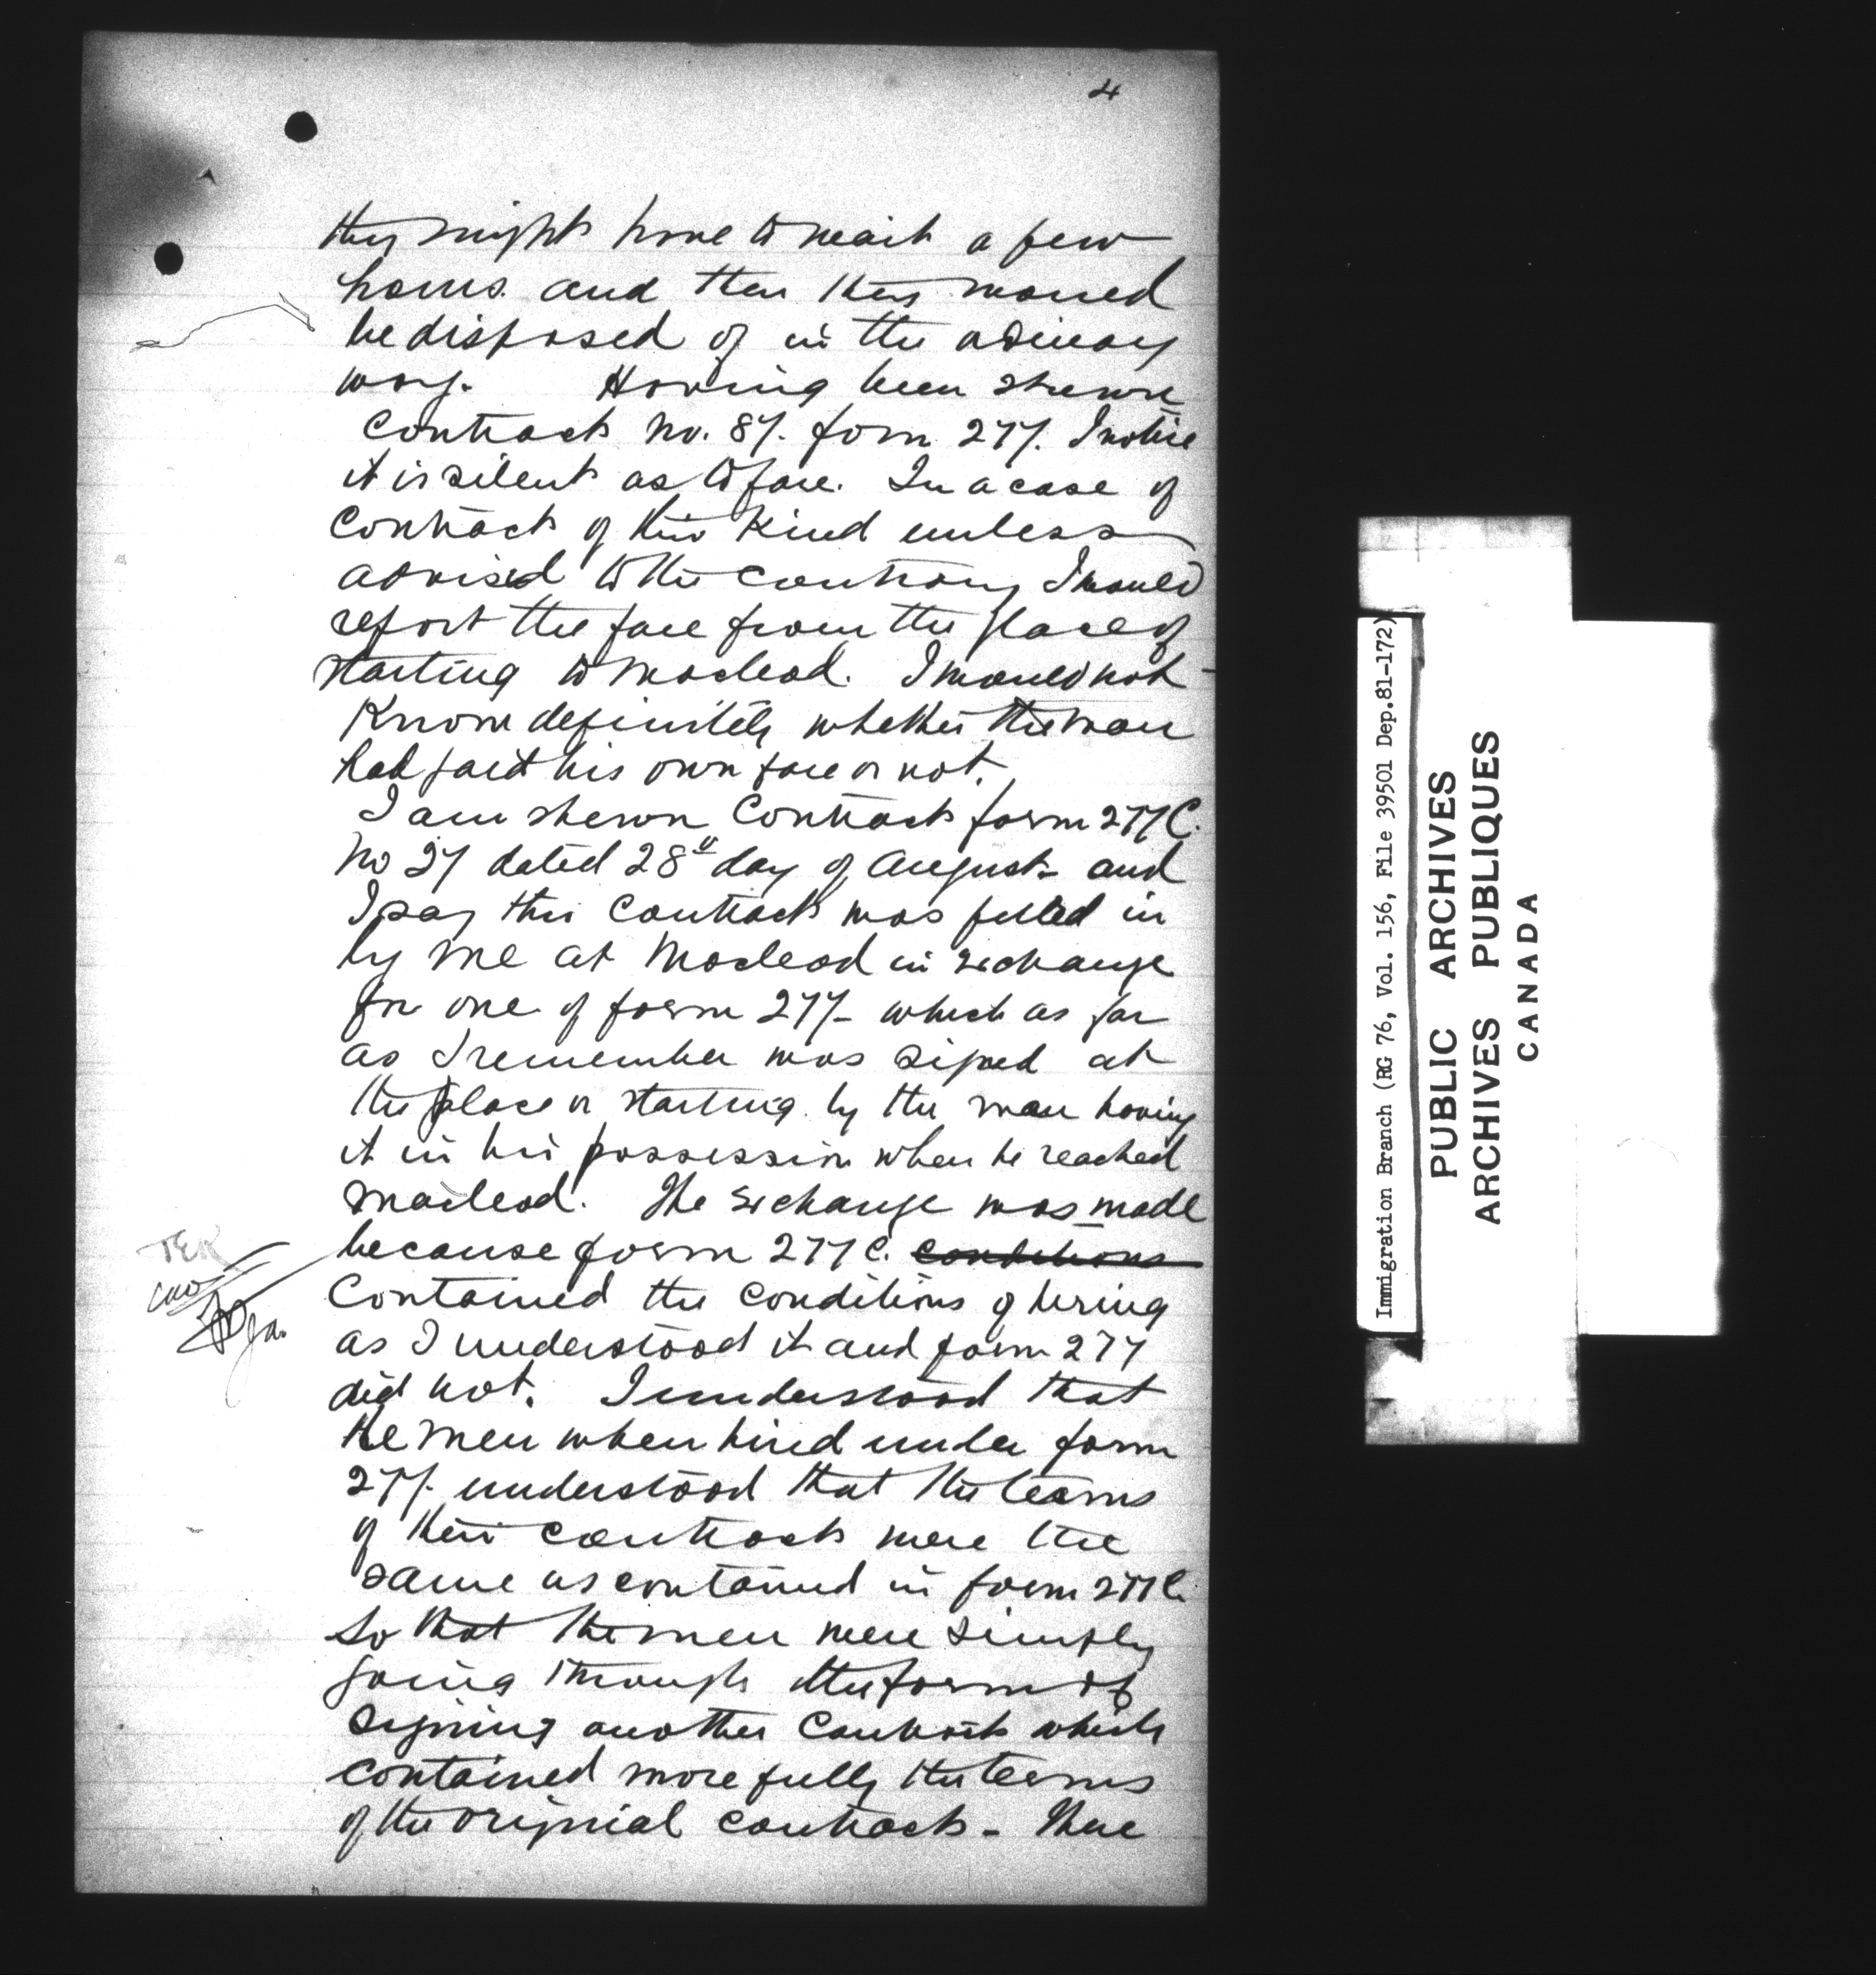 4
they might have to wait a few
hours and then they would
be disposed of in the ordinary
way. Having been shewn
Contract No. 87. form 277. I notice
it is silent as to fare. In a case of
Contract of this kind unless
advised to the contrary I would
report the fare from the place of
starting to Macleod. I would not
Know definitely whether the man
had paid his own fare or not.
I am shewn Contract form 277 C.
No 27 dated 28th day of August - and
I say this Contract was filled in
by me at Macleod in exchange
for one of form 277 - which as far
as I remember was signed at
the place or starting by the man having
it in his possession when he reached
Macleod. The exchange was made
because form 277 C. conditions
Contained the conditions of hiring
as I understood it and form 277
did not. I understood that
the men when hired under form
277. understood that the terms
of their contract were the
same as contained in form 277 C.
So that the men were simply
going through the form of
signing another Contract which
contained more fully the terms
of the original contract - There
Immigration Branch (RG 76, Vol. 156, File 39501 Dep.81-172)
PUBLIC ARCHIVES
ARCHIVES PUBLIQUES
CANADA